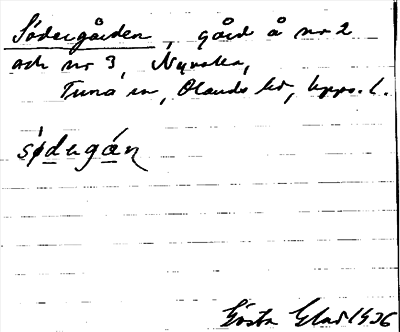 Södergården, gård å nr 2
och nr 3, Nyvalla,
Tuna sn, Olands hd, Upps. l.
södergå̀n
Gösta Elas 1936